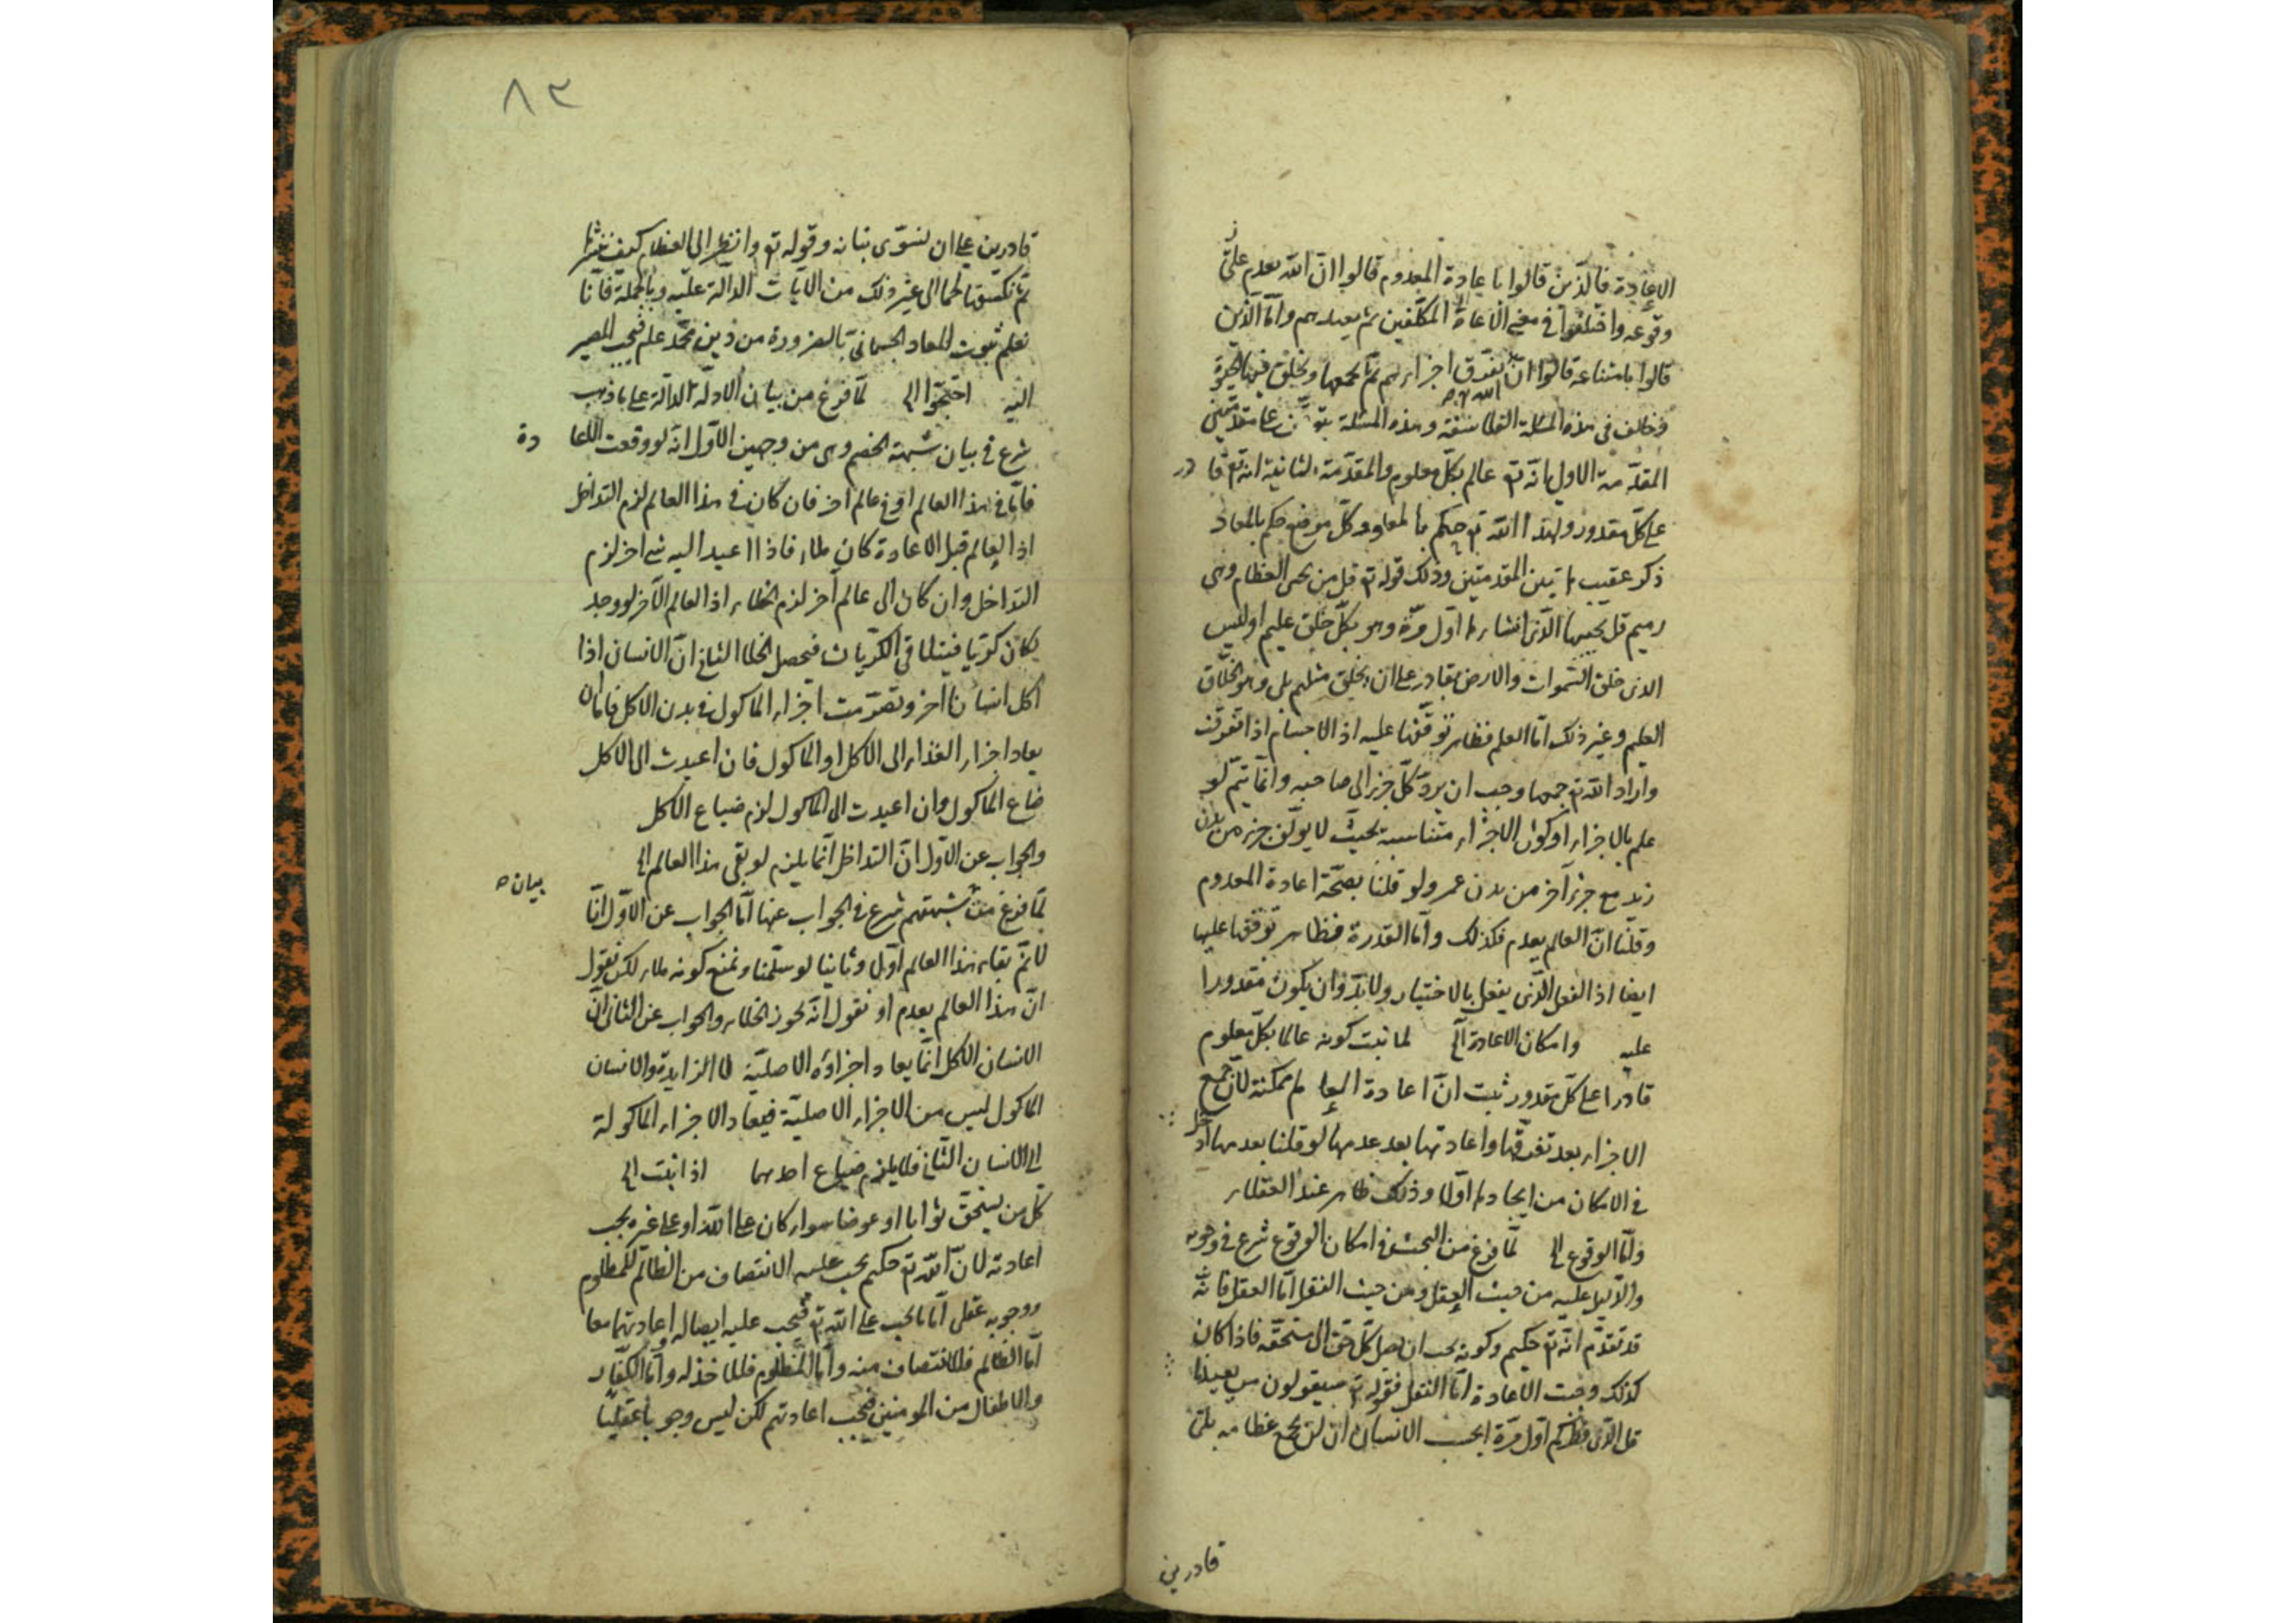 الاعادة فالذين قالوا باعادة المعدوم قالوا ان الله يعدم
وقوعه واختلفوا في معنى الاعادة المكلفين ثم يعيدهم واما الذين
قالوا بامتناعه قالوا ان الله يفرق اجزاءهم ثم يجمعها ويخلق فيها الحيوة
وخالف في هذه المسئلة الفلاسفة وهذه المسئلة على مقدمتين
المقدمة الاولى انه تع عالم بكل معلوم والمقدمة الثانية انه تع قادر
على كل مقدور ولهذا الله تع حكم بالمعاد وكل موضع حكم بالمعاد
ذكر عقيب هاتين المقدمتين وذلك قوله تع قل من يحيى العظام وهى
رميم قل يحييها الذى انشاءها اول مرة وهو بكل خلق عليم اوليس
الذى خلق السموات والارض بقادر على ان يخلق مثلهم بلى وهو الخلاق
العليم وغير ذلك اما العلم فظاهر توقفها عليه اذ الاجسام اذا تفرقت
واراد الله تع جمعها وجب ان يرد كل جزء الى صاحبه وانما يتم لو
علم بالاجزاء وكون الاجزاء متناسبة بحيث لا يؤلف جزء من بدن
زيد مع جزء آخر من بدن عمرو ولو قلنا بصحة اعادة المعدوم
وقلنا ان العالم يعدم فكذلك واما القدرة فظاهر توقفها عليها
ايضا اذ الفعل الذى يفعل بالاختيار ولابد وان يكون مقدورا
عليه وامكان الاعادة الى لما ثبت كونه عالما بكل معلوم
قادرا على كل مقدور ثبت ان اعادة العالم ممكنة لان جمع
الاجزاء بعد تفرقها واعادتها بعد عدمها لو قلنا بعدمها
في الامكان من ايجادها اولا وذلك ظاهر عند العقلاء
واما الوقوع الى لما فرغ من البحث في امكان الوقوع شرع في وجوبه
والدليل عليه من حيث العقل ومن حيث النقل اما العقل فانه
قد تقدم انه تع حكيم وكونه يجب ان يصل كل حق الى مستحقه فاذا كان
كذلك وجبت الاعادة اما النقل فقوله تع سيقولون من يعيدنا
قل الذى فطركم اول مرة ايحسب الانسان ان لن نجمع عظامه بلى
قادرين
٨٢
قادرين على ان نسوى بنانه وقوله تع وانظر الى العظام كيف ننشزها
ثم نكسوها لحما الى غير ذلك من الآيات الدالة عليه وبالجملة فانا
نعلم ثبوت المعاد الجسمانى بالضرورة من دين محمد علم فيجب المصير
اليه احتجوا الى لما فرغ من بيان الادلة الدالة على ما ذهب
شرع في بيان شبهة الخصم وهى من وجهين الاول انه لو وقعت الاعادة
فاما في هذا العالم او في عالم اخر فان كان في هذا العالم لزم التداخل
اذ العالم قبل الاعادة كان ملاء فاذا اعيد اليه شئ اخر لزم
التداخل وان كان الى عالم آخر لزم الخلاء اذ العالم الآخر لو وجد
لكان كريا فيتلاقى الكريات فيحصل الخلا الثانى ان الانسان اذا
اكل انسانا اخر وتقومت اجزاء الماكول في بدن الاكل فاما ان
يعاد اجزاء الغذاء الى الاكل او الماكول فان اعيدت الى الاكل
ضاع الماكول وان اعيدت الى الماكول لزم ضياع الاكل
والجواب عن الاول ان التداخل انما يلزم لو بقى هذا العالم الى
لما فرغ من بيان شبهتهم شرع في الجواب عنها اما الجواب عن الاول انا
لا نم بقاء هذا العالم اولا وثانيا لو سلمنا ونمنع كونه ملاء لكن نقول
ان هذا العالم يعدم او نقول انه يجوز الخلاء والجواب عن الثانى ان
الانسان الاكل انما يعاد اجزاؤه الاصلية لا الزايدة والانسان
الماكول ليس من الاجزاء الاصلية فيعاد الاجزاء الماكولة
الى الانسان الثانى فلا يلزم ضياع احدهما اذا ثبت الى
كل من يستحق ثوابا او عوضا سواء كان على الله او على غيره يجب
اعادته لان الله تع حكيم يجب عليه الانتصاف من الظالم للمظلوم
ووجوبه عقلى اما ما يجب على الله تع فيجب عليه ايصاله واعادتهما معا
اما الظالم فللانتصاف منه واما المظلوم فللاخذ له واما الكفار
والاطفال من المومنين فيجب اعادتهم لكن ليس وجوبا عقليا